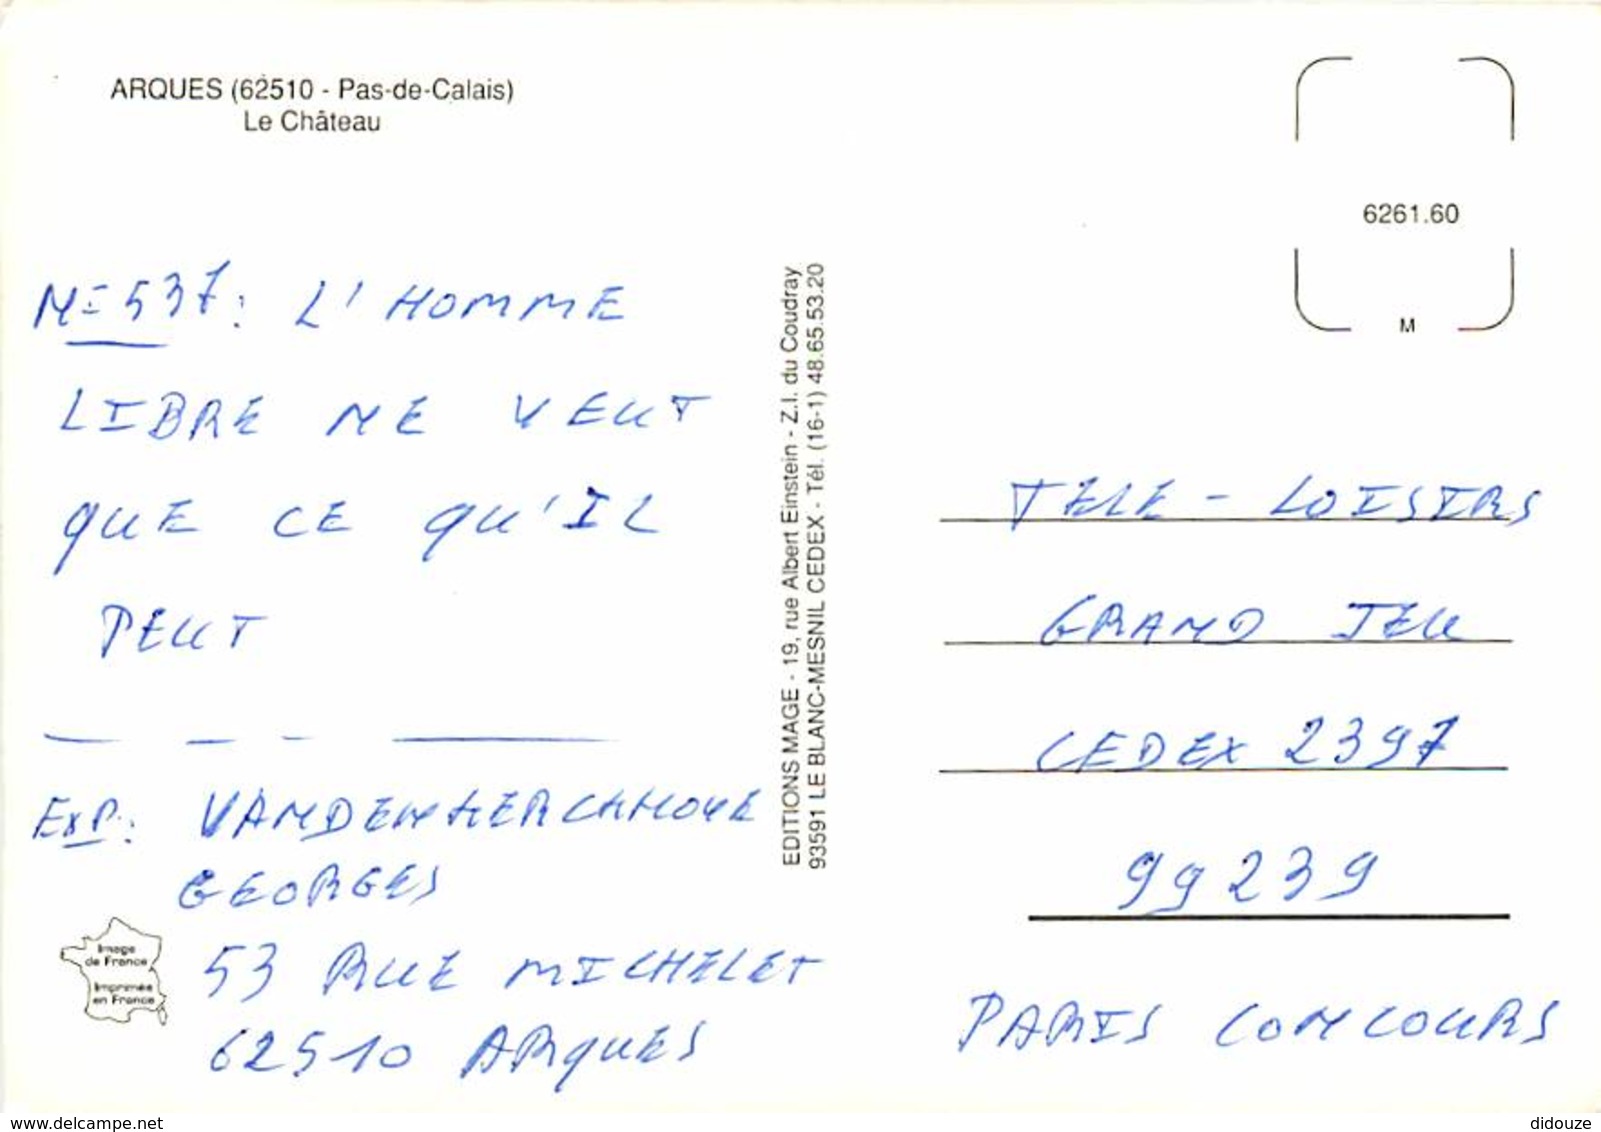 ARQUES (62510 - Pas-de-Calais)
Le Château
6261.60
M
N= 537: L'HOMME
LIBRE NE VEUT
QUE CE QU'IL
PEUT
EXP: VANDENKERCKHOVE
GEORGES
53 RUE MICHELET
62510 ARQUES
Image
de France
Imprimée
en France
EDITIONS MAGE - 19, rue Albert Einstein - Z.I. du Coudray
93591 LE BLANC-MESNIL CEDEX - Tél. (16-1) 48.65.53.20
TELE - LOISIRS
GRAND JEU
CEDEX 2397
99239
PARIS CONCOURS
www.delcampe.net
didouze